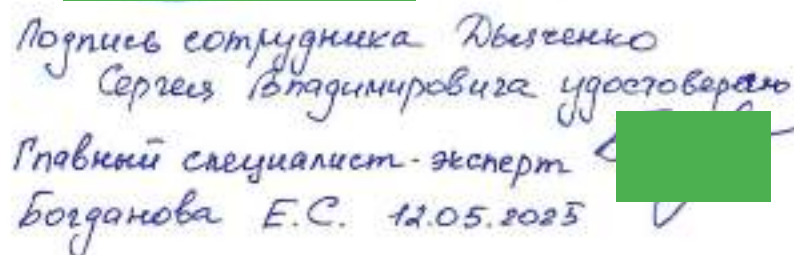 Подпись сотрудника Дьяченко
Сергея Владимировича удостоверяю
Главный специалист-эксперт
Богданова Е.С. 12.05.2025